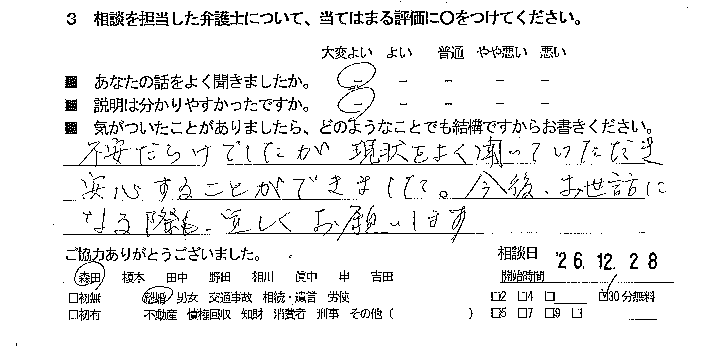 3 相談を担当した弁護士について、当てはまる評価に〇をつけてください。
大変よい よい 普通 やや悪い 悪い
■ あなたの話をよく聞きましたか。 － － － － －
■ 説明は分かりやすかったですか。 － － － － －
■ 気がついたことがありましたら、どのようなことでも結構ですからお書きください。
不安だらけでしたが 現状をよく聞いていただき
安心することができました。今後、お世話に
なる際も、宜しくお願いします
ご協力ありがとうございました。 相談日 '26.12.28
森田 榎本 田中 野田 相川 申 吉田 開始時間
□初無 離婚 男女 交通事故 相続・遺言 労使 □2 □4 □ 30分無料
□初有 不動産 債権回収 知財 消費者 刑事 その他 ( ) □5 □7 □9 □